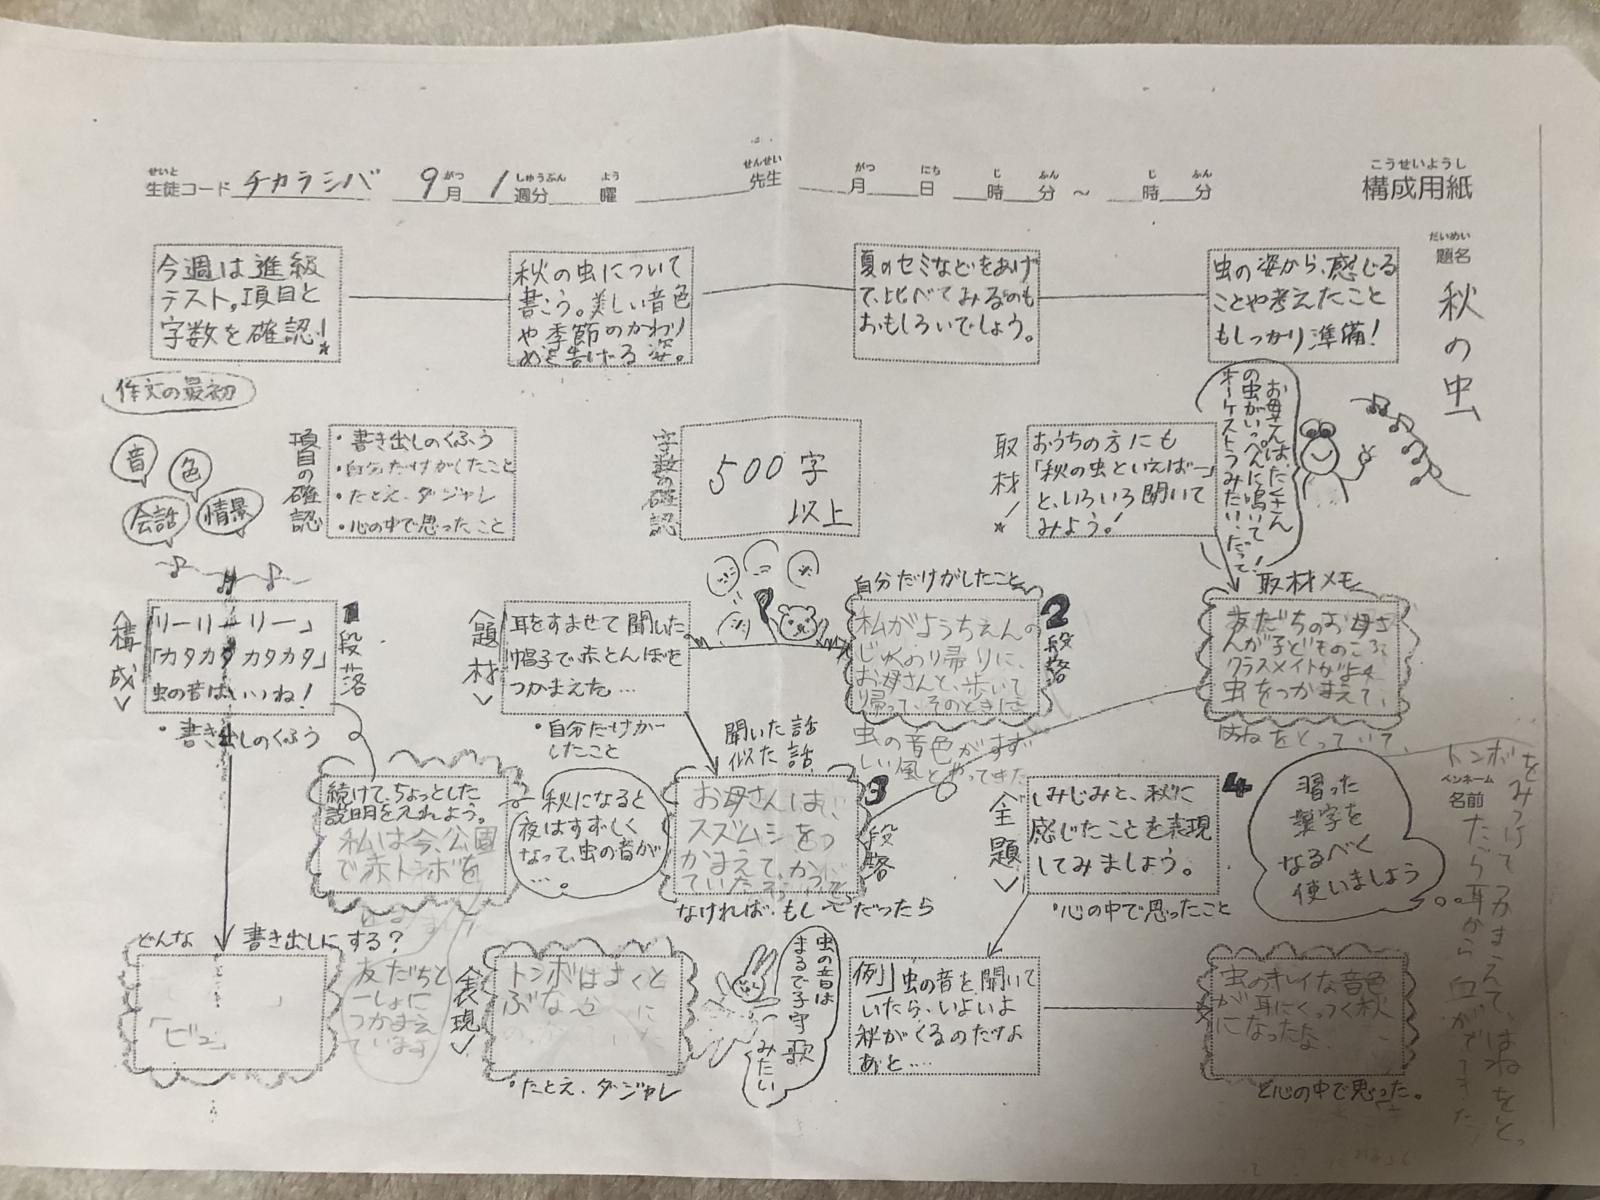 せいと がつ しゅうぶん よう せんせい がつ にち じ ふん じ ふん
生徒コード チカラシバ 9月 1週分 曜 先生 月 日 時 分 ～ 時 分
こうせいようし
構成用紙
だいめい
題名
秋の虫
今週は進級
テスト。項目と
字数を確認!
秋の虫について
書こう。美しい音色
や季節のかわり
めを告げる姿。
夏のセミなどをあげ
て、比べてみるのも
おもしろいでしょう。
虫の姿から、感じる
ことや考えたこと
もしっかり準備!
作文の最初
音
色
会話
情景
項目の確認
・書き出しのくふう
・自分だけがしたこと
・たとえ、ダジャレ
・心の中で思ったこと
字数の確認
500字
以上
取材!
おうちの方にも
「秋の虫といえば…」
と、いろいろ聞いて
みよう。!
お母さんはたくさん
の虫がいっぺんに鳴いて
オーケストラみたい、だって!
〈構成〉
「リーリーリー」
「カタカタ カタカタ」
虫の音はいいね!
1段落
・書き出しのくふう
〈題材〉
耳をすませて聞いた
帽子で赤とんぼを
つかまえた…
・自分だけが
したこと
自分だけがしたこと
私がようちえんの
じゅくの帰りに、
お母さんと、歩いて
帰って、そのときに
虫の音色がすず
しい風とやってきた
2段落
取材メモ
友だちのお母さ
んが子どものころ、
クラスメイトがよく
虫をつかまえて、
はねをとっていて、
トンボを
みつけてつかまえて、はねをと。
たら耳から血がでてきた
ペンネーム
名前
続けて、ちょっとした
説明をいれよう。
私は今、公園
で赤トンボを
友だちと
一しょに
つかまえ
ています
秋になると
夜はすずしく
なって、虫の音が
…。
聞いた話
似た話
お母さんは、
スズムシをつ
かまえて、かっ
ていた
3段落
なければ、もし〜だったら
〈全題〉
しみじみと、秋に
感じたことを表現
してみましょう。
4
・心の中で思ったこと
習った
漢字を
なるべく
使いましょう
どんな 書き出しにする?
「ビュ」
〈表現〉
トンボは
・たとえ、ダジャレ
虫の音は
まるで子守歌
みたい
例」虫の音を聞いて
いたら、いよいよ
秋がくるのだなあ
と…。
虫のキレイな音色
が耳にくっつく秋
になったな
と心の中で思った。